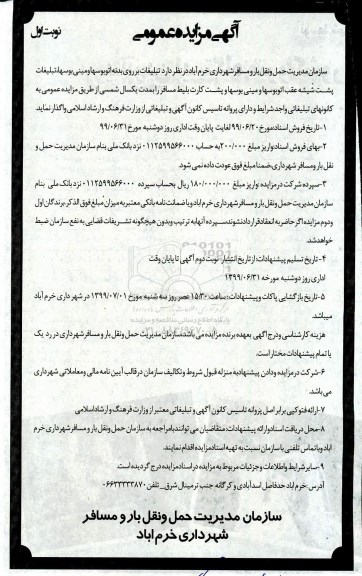 آگهی مزایده عمومی
نوبت اول
سازمان مدیریت حمل ونقل بار و مسافر شهرداری خرم آباد در نظر دارد تبلیغات بر روی بدنه اتوبوسها ومینی بوسها،تبلیغات
پشت شیشه عقب اتوبوسها و مینی بوسها و پشت کارت بلیط مسافر را بمدت یکسال شمسی از طریق مزایده عمومی به
کانونهای تبلیغاتی واجد شرایط و دارای پروانه تاسیس کانون آگهی و تبلیغاتی از وزارت فرهنگ و ارشاد اسلامی واگذار نماید.
۱-تاریخ فروش اسناد:مورخ ۹۹/۰۶/۲۰ لغایت پایان وقت اداری روز دوشنبه مورخ ۹۹/۰۶/۳۱
۲-بهای فروش اسناد:واریز مبلغ ۲۰۰/۰۰۰ به حساب ۰۱۱۲۵۹۹۵۶۶۰۰۰ نزد بانک ملی بنام سازمان مدیریت حمل و
نقل بار و مسافر شهرداری،ضمنا مبلغ فوق عودت داده نمی شود.
۳-سپرده شرکت در مزایده: واریز مبلغ ۱۸۰/۰۰۰/۰۰۰ ریال بحساب سپرده ۰۱۱۲۵۹۹۵۶۶۰۰۰ نزد بانک ملی بنام
سازمان مدیریت حمل ونقل بار و مسافر شهرداری خرم آباد ویا ضمانت نامه بانکی معتبر به میزان مبلغ فوق الذکر.برندگان اول
ودوم مزایده اگر حاضر به انعقاد قرارداد نشوند،سپرده آنها به ترتیب وبدون هیچگونه تشریفات قضایی به نفع سازمان ضبط
خواهد شد.
۴-تاریخ تسلیم پیشنهادات:از تاریخ انتشار نوبت دوم آگهی تا پایان وقت
اداری روز دوشنبه مورخه ۱۳۹۹/۰۶/۳۱
۵-تاریخ بازگشایی پاکات وپیشنهادات:ساعت ۱۵:۳۰ عصر روز سه شنبه مورخ ۱۳۹۹/۰۷/۰۱ در شهرداری خرم آباد
میباشد
هزینه کارشناسی ودرج آگهی بعهده برنده مزایده می باشد.سازمان مدیریت حمل ونقل بار و مسافر شهرداری در رد یک
یا تمام پیشنهادات مختار است.
۶-شرکت در مزایده ودادن پیشنهاد به منزله قبول شروط و تکالیف سازمان در قالب آیین نامه مالی و معاملاتی شهرداری
می باشد.
۷-ارائه فتوکپی برابر اصل پروانه تاسیس کانون آگهی و تبلیغاتی معتبر از وزارت فرهنگ و ارشاد اسلامی
۸-محل دریافت اسناد وارائه پیشنهادات:متقاضیان می توانند بامراجعه به سازمان حمل ونقل بار و مسافر شهرداری خرم
اباد ویا تماس تلفنی با سازمان نسبت به تهیه اسناد مزایده اقدام نمایند.
۹-سایر شرایط واطلاعات وجزئیات مربوط به مزایده در اسناد مزایده درج گردیده است.
آدرس:خرم آباد حدفاصل اسدآبادی و کرگانه جنب ترمینال شرق_تلفن ۰۶۶۳۳۳۳۳۸۷۰
سازمان مدیریت حمل ونقل بار و مسافر
شهرداری خرم آباد